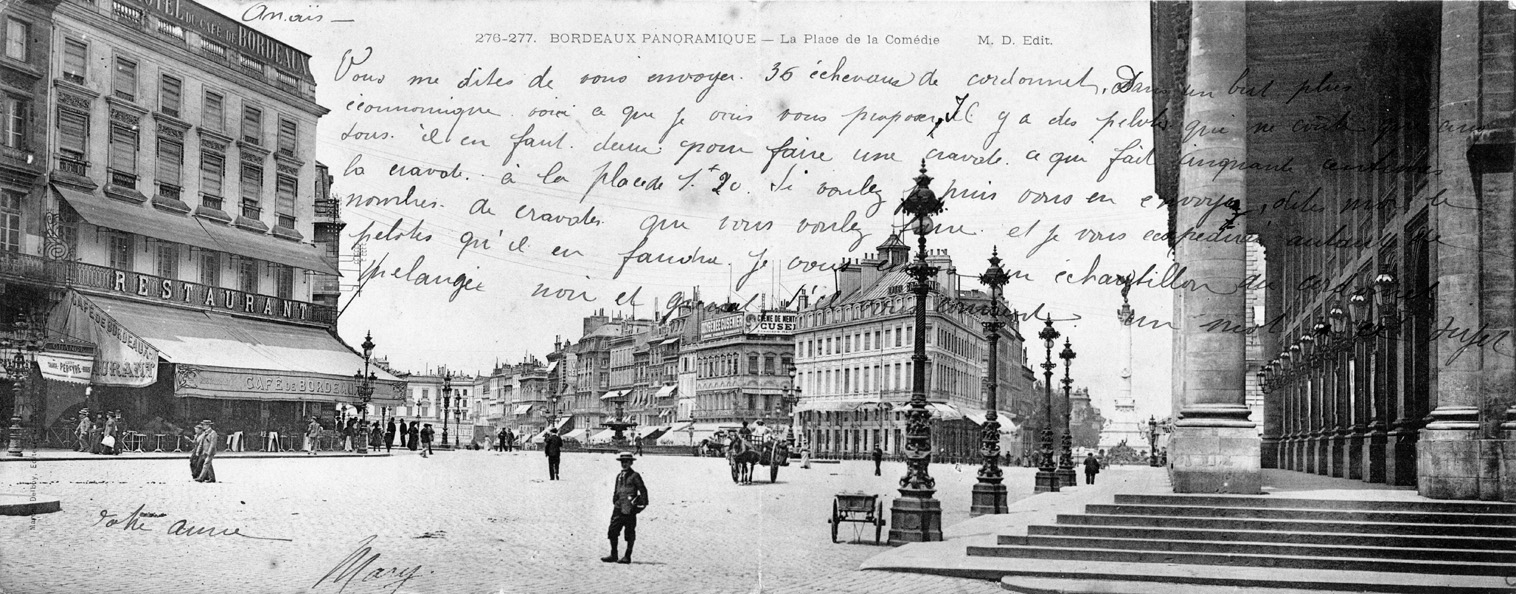 HOTEL DU CAFÉ DE BORDEAUX
Anaïs —
276-277. BORDEAUX PANORAMIQUE — La Place de la Comédie M. D. Edit.
Vous me dites de vous envoyer 36 échevaux de cordonnet, Dans un but plus
économique voici ce que je vais vous proposer, Il y a des pelotes qui ne coûte
sous. il en faut deux pour faire une cravate ce qui fait cinquante centimes
la cravate à la place de 1f 20. Si voulez je puis vous en envoyer, dites moi le
nombres de cravates que vous voulez faire et je vous expédirai autant de
pelotes qu'il en faudra. Je vous un échantillon du cordonnet
mélangé noir et un mot
RESTAURANT
CAFÉ DE BORDEAUX
CAFÉ DE BORDEAUX
CRÈME DE MENTHE
CUSENIER
votre amie
Mary.